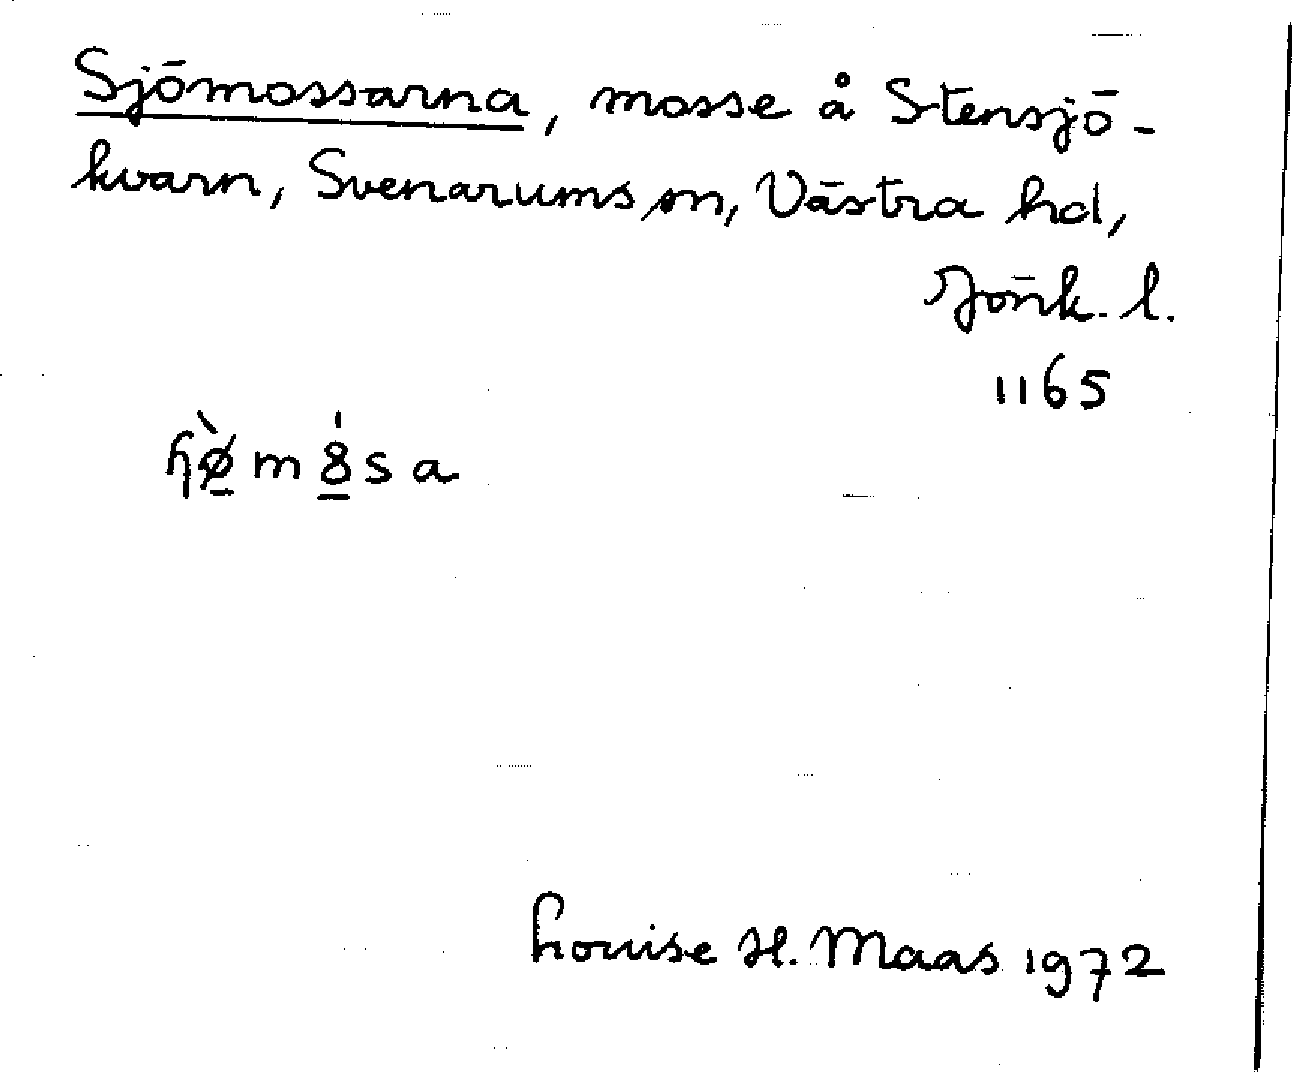 Sjömossarna, mosse å Stensjö-
kvarn, Svenarums sn, Västra hd,
Jönk. l.
1165
ɧø̀m8̍sa
Louise H. Maas 1972